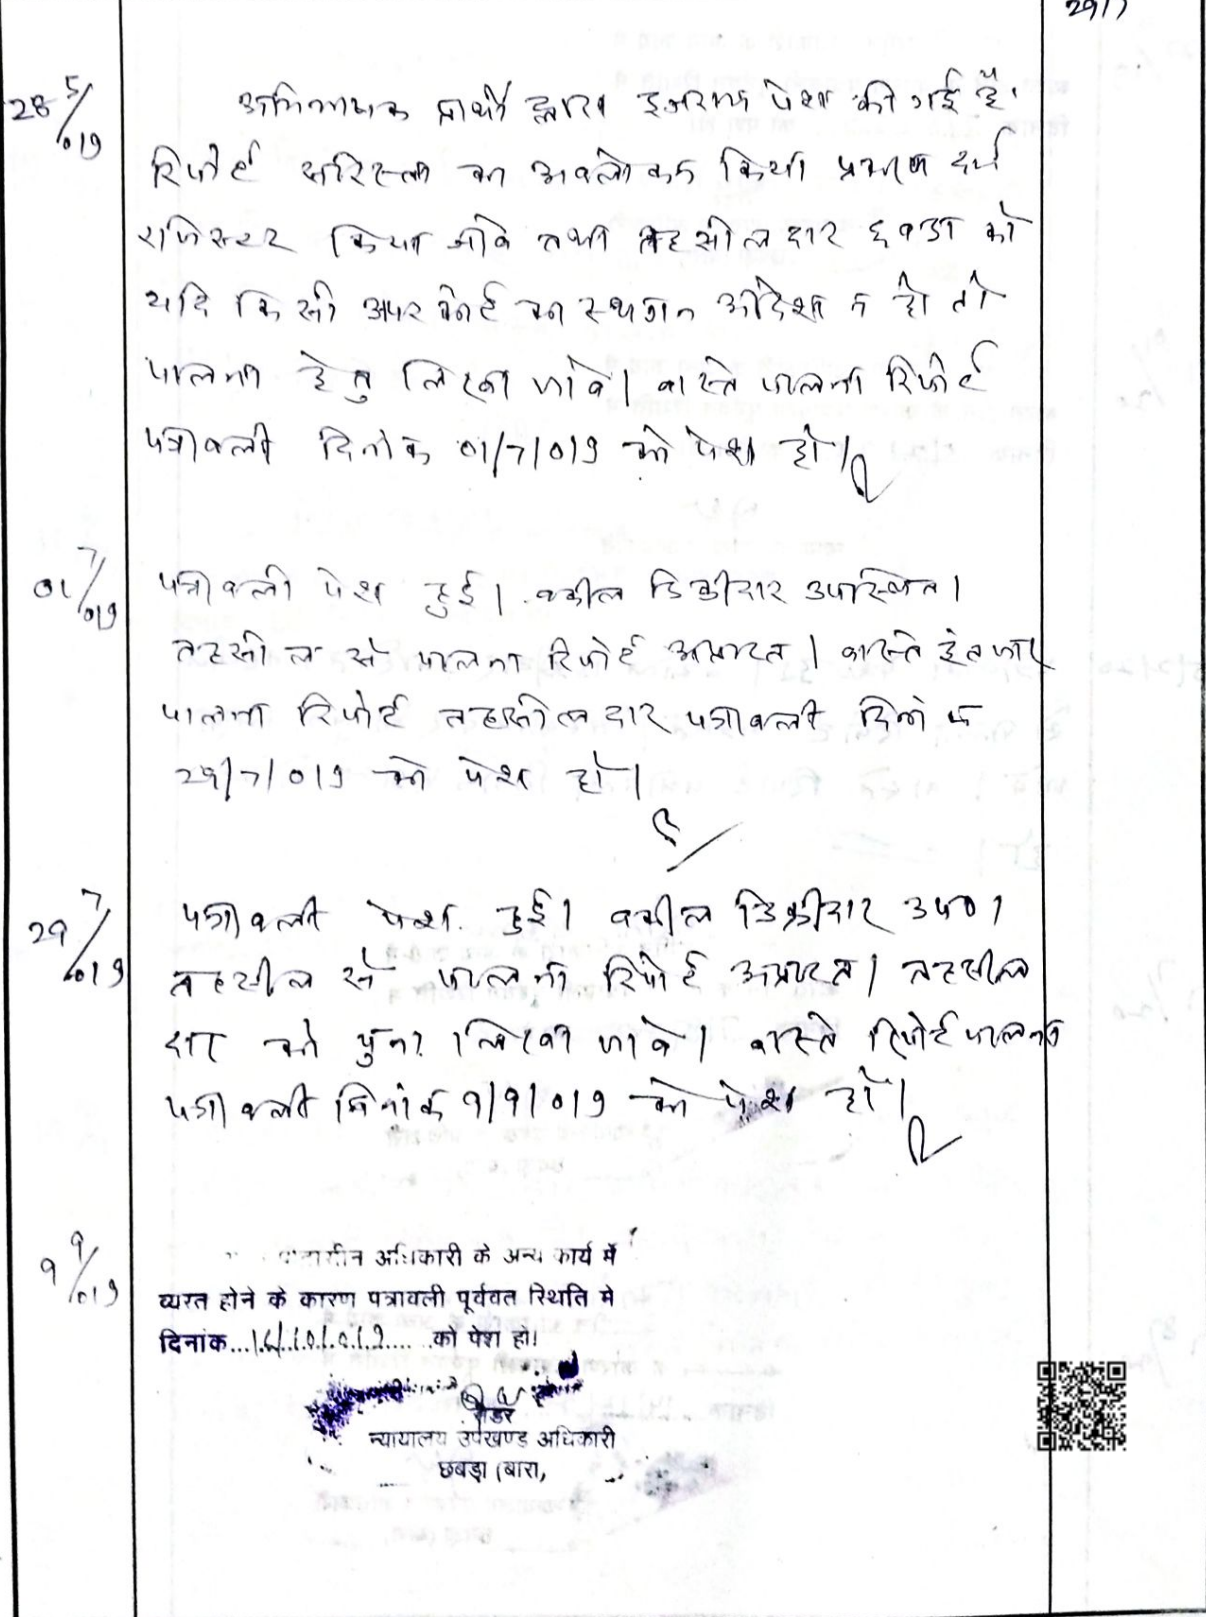 2917
28 5/019
अभिभाषक प्रार्थी द्वारा इजराय पेश की गई है।
रिपोर्ट सरिस्ता का अवलोकन किया प्रकरण दर्ज
रजिस्टर किया जावे तथा तहसीलदार छबडा को
यदि किसी अपर कोर्ट का स्थगन आदेश न हो तो
पालना हेतु लिखा जावे। वास्ते पालना रिपोर्ट
पत्रावली दिनांक 01/7/019 को पेश हो।
01 7/019
पत्रावली पेश हुई। वकील डिक्रीदार उपस्थित।
तहसील से पालना रिपोर्ट अप्राप्त। वास्ते इंतजार
पालना रिपोर्ट तहसीलदार पत्रावली दिनांक
29/7/019 को पेश हो।
29 7/019
पत्रावली पेश हुई। वकील डिक्रीदार उप0।
तहसील से पालना रिपोर्ट अप्राप्त। तहसील
दार को पुनः लिखा जावे। वास्ते रिपोर्ट पालना
पत्रावली दिनांक 9/9/019 को पेश हो।
9 9/019
अधिकारी के अन्य कार्य में
व्यस्त होने के कारण पत्रावली पूर्ववत स्थिति मे
दिनांक को पेश हो।
रीडर
न्यायालय उपखण्ड अधिकारी
छबड़ा (बारा,